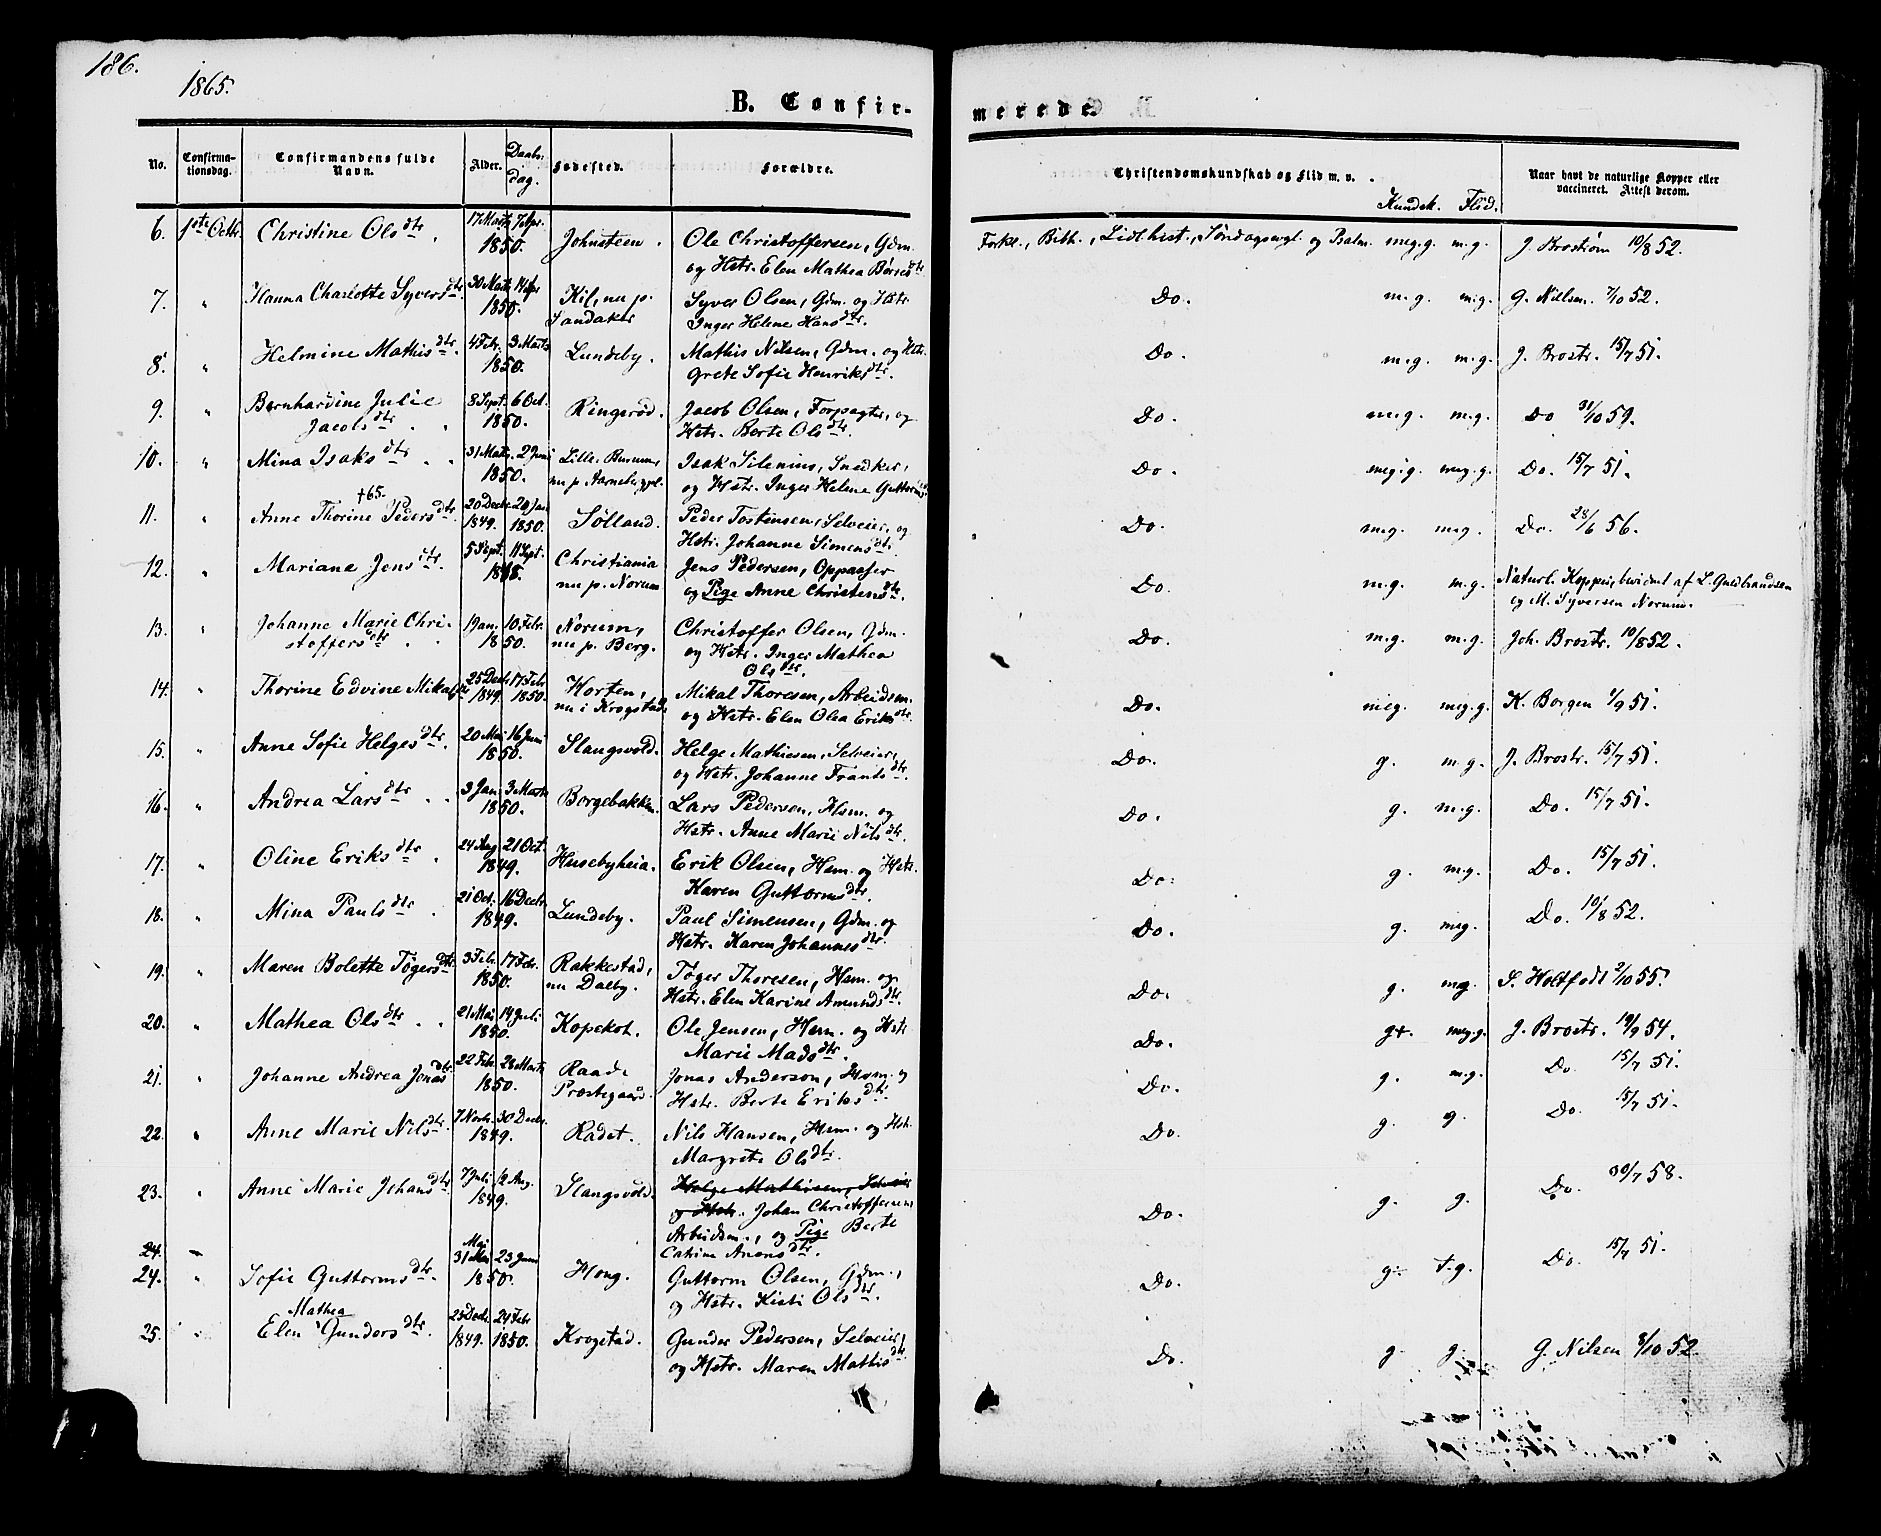 186.
1865.
B. Confir-
merede.
No. Confirma-tionsdag. Confirmandens fulde Navn. Alder. Daabs-dag. Fødested. Forældre. Christendomskundskab og Flid m. v. Kundsk. Flid. Naar havt de naturlige Kopper eller vaccineret. Attest derom.
6. 1ste Octbr. Christine Olsdtr. 17 Marts 7 Apr. 1850. Johnsteen. Ole Christoffersen, Gdm. Forkl., Bibh., Søndagsevgl. og Psalm. meg.g. m.g. J. Brostrøm 10/8 52.
og Hstr. Elen Mathea Børresdtr.
7. " Hanna Charlotte Syversdtr. 30 Marts 14 Apr. 1850. Kil, nu p. Sandaker Syver Olsen, Gdm. og Hstr. Do. m.g. m.g. G. Nilsen. 7/10 52.
Inger Helene Hansdtr.
8. " Helmine Mathisdtr. 4 Febr. 3 Marts 1850. Lundeby. Mathis Nilsen, Gdm. og Hstr. Do. m.g. m.g. J. Brostr. 15/7 51.
Grete Sofie Henriksdtr.
9. " Bernhardine Julie Jacobsdtr. 8 Sept. 6 Oct. 1850. Ringsrød. Jacob Olsen, Forpagter, og Do. m.g. m.g. Do 31/10 59.
Hstr. Berte Olsdtr.
10. " Mina Isaksdtr. 31 Marts. 2 Juni 1850. Lille nu p. Isak Silenius, Snedker, Do. meg.g. meg.g. Do. 15/7 51.
og Hstr. Inger Helene Guttormsdtr.
†65.
11. " Anne Thorine Pedersdtr. 20 Decbr. 1849. 20 Jan. 1850. Sølland. Peder Tostensen, Selveier, og Do. m.g. m.g. Do. 28/6 56.
Hstr. Johanne Simensdtr.
12. " Mariane Jensdtr. 5 Sept. 11 Sept. Christiania nu p. Norum Jens Pedersen, Oppasser Do. m.g. m.g. Naturl. Kopper, bevidnet af L. Guldbrandsen
og Pige Anne Christensdtr. og M. Syversen Norum.
13. " Johanne Marie Chri-stoffersdtr. 1 Jan. 10 Febr. 1850. Norum, nu p. Berg. Christoffer Olsen, Gdm. Do. m.g. m.g. Joh. Brostr. 10/8 52.
og Hstr. Inger Mathea
Olsdtr.
14. " Thorine Edvine Mikalsdtr 25 Decbr 1849. 17 Febr 1850. Horten, nu i Krogstad. Mikal Thoresen, Arbeidsm. Do. meg. meg.g. K. Borgen 1/9 51.
og Hstr. Elen Olea Eriksdtr.
15. " Anne Sofie Helgesdtr. 20 Mai 16 Juni 1850. Slangsvold. Helge Mathiesen, Selveier, Do. g. m.g. J. Brostr. 15/7 51.
og Hstr. Johanne Frantsdtr.
16. " Andrea Larsdtr. 3 Jan. 3 Marts 1850. Borgebakken. Lars Pedersen, Hsm. og Do. g. m.g. Do. 15/7 51.
Hstr. Anne Marie Nilsdtr.
17. " Oline Eriksdtr. 24 Aug 21 Oct. 1849. Husebyheia. Erik Olsen, Hsm. og Hstr. Do. g. m.g. Do. 15/7 51.
Karen Guttormsdtr.
18. " Mina Paulsdtr. 21 Oct. 16 Decbr. 1849. Lundeby. Paul Simensen, Gdm. og Do. g. meg. Do. 10/8 52.
Hstr. Karen Johannesdtr.
19. " Maren Bolette Tøgersdtr. 3 Febr. 17 Febr. 1850. Rakkestad, nu Dalby. Tøger Thoresen, Hsm. og Do. g. mg. S. Holtfodt 2/10 55.
Hstr. Elen Karine Amundsdtr.
20. " Mathea Olsdtr. 21 Mai 14 Juli 1850. Kopekot. Ole Jensen, Hsm. og Hstr. Do. g+. meg.g. J. Brostr. 19/9 54.
Marie Madsdtr.
21. " Johanne Andrea Jonasdtr. 22 Febr. 28 Marts 1850. Raade Præstegaard. Jonas Anderson, Hsm. og Do. g. m.g. Do. 15/7 51.
Hstr. Berte Eriksdtr.
22. " Anne Marie Nilsdtr. 7 Novbr. 30 Decbr. 1849. Rødet. Nils Hansen, Hsm. og Hstr. Do. g. g. Do. 15/7 51.
Margrete Olsdtr.
23. " Anne Marie Johansdtr. 7 Juli 12 Aug. 1849. Slangsvold. Helge Mathisen, Selveier Do. g. g. Do. 30/7 58.
og Hstr. Johan Christoffersen
Arbeidsm., og Pige Berte
24. Catrine Anensdtr.
24. " Sofie Guttormsdtr. Mai 31 Mai 23 Juni 1850. Houg. Guttorm Olsen, Gdm., Do. g. t.g. Do. 15/7 51.
og Hstr. Kisti Olsdtr.
25. " Elen Mathea Gundersdtr. 25 Decbr. 1849. 24 Febr. 1850. Krogstad. Gunder Pedersen, Selveier, Do. g. g. G. Nilsen 8/10 52.
og Hstr. Maren Mathisdtr.